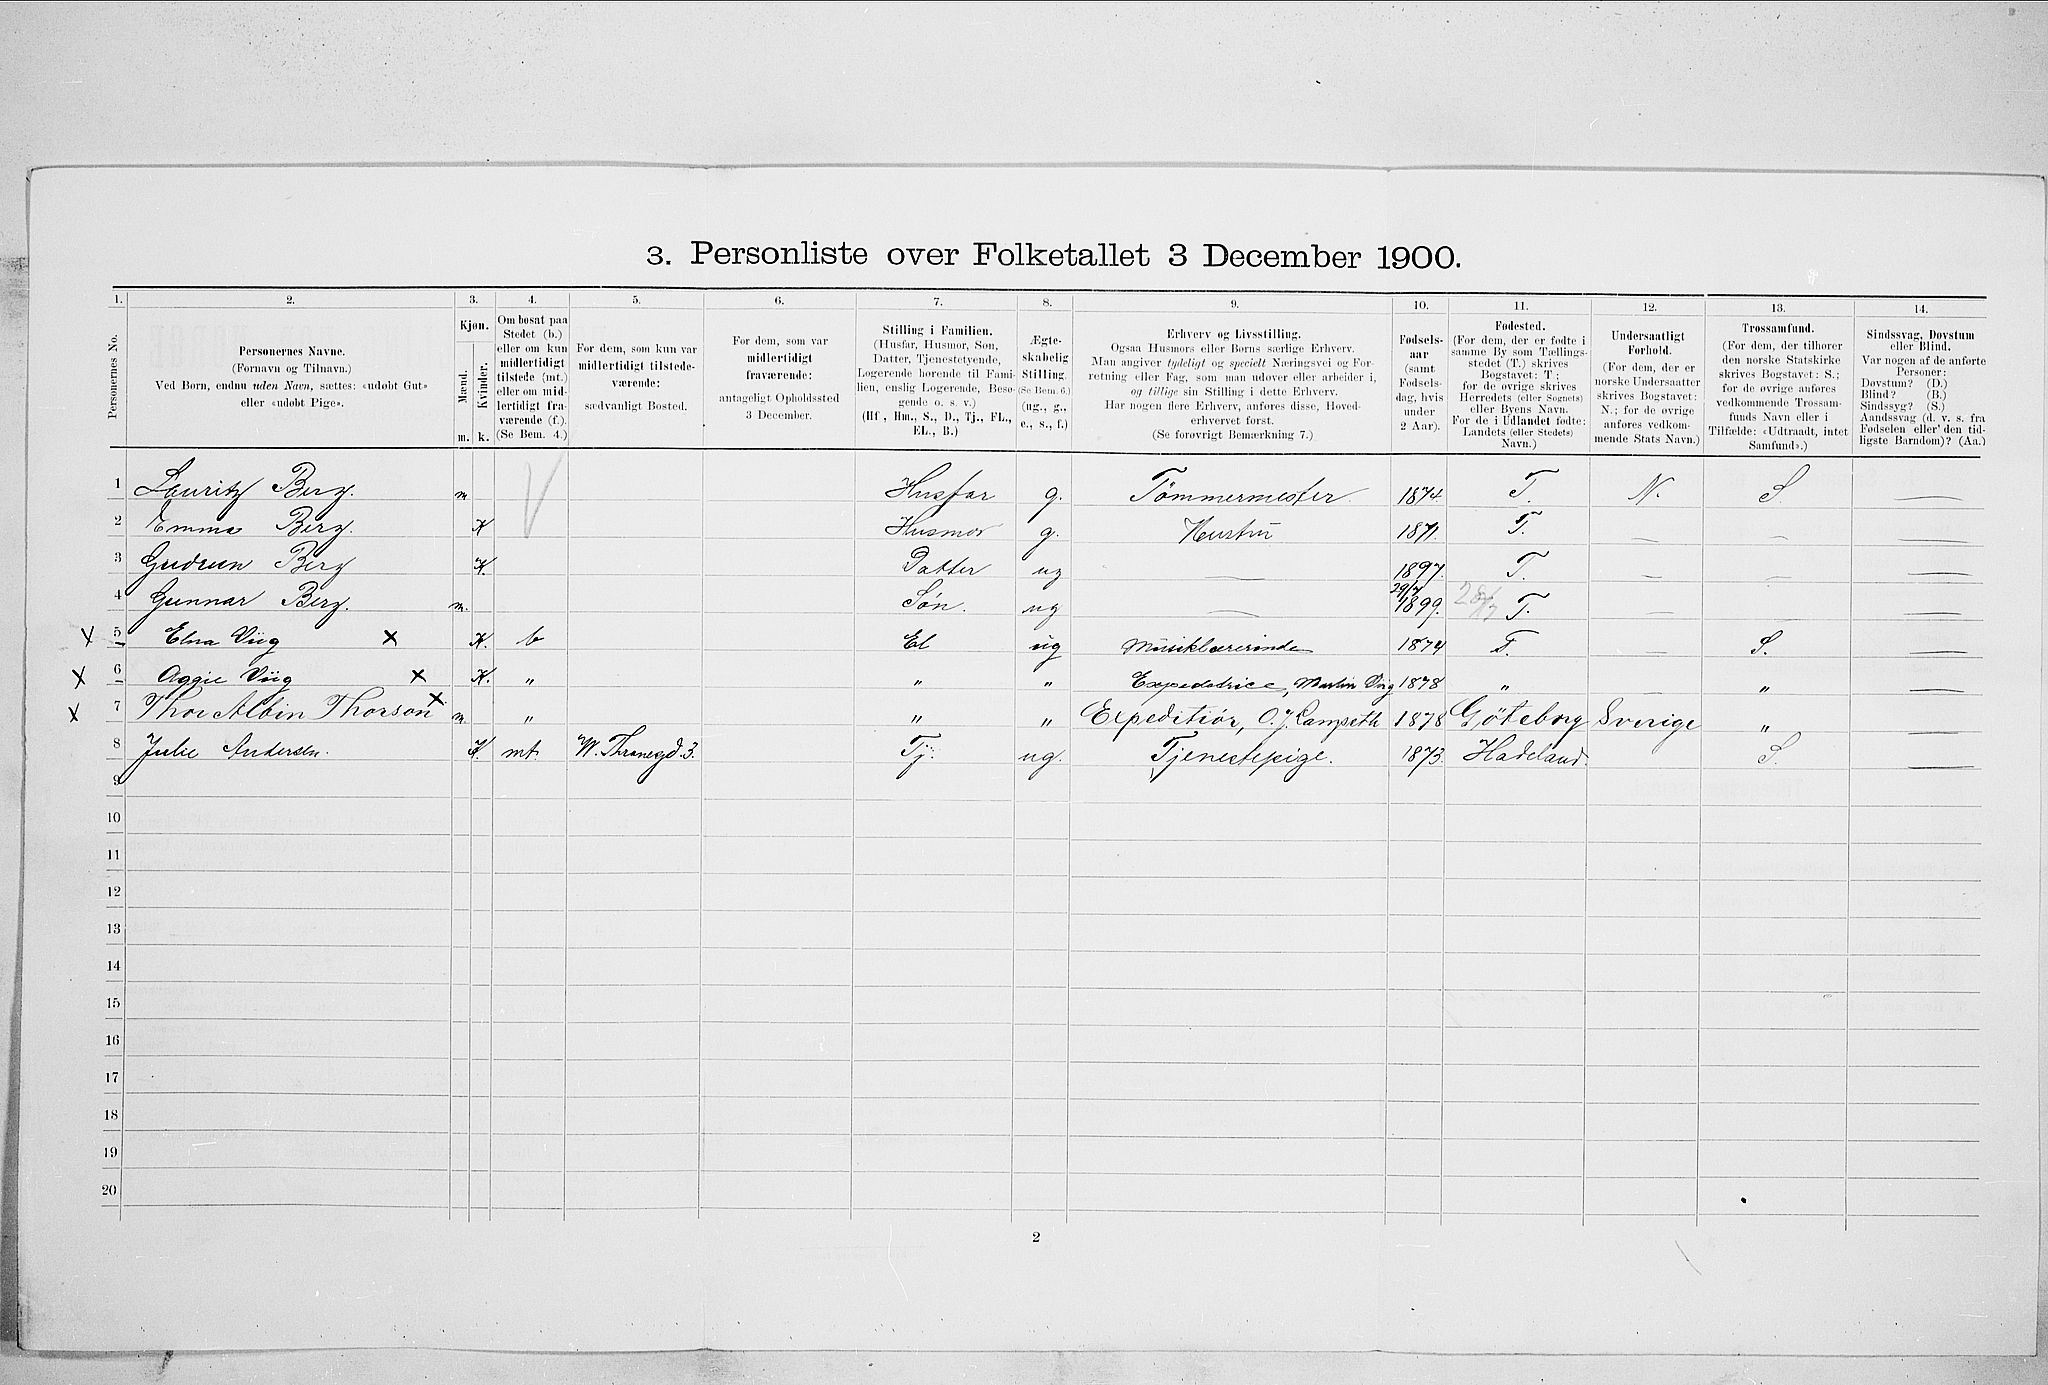 3. Personliste over Folketallet 3 December 1900.
1. 2. 3. 4. 5. 6. 7. 8. 9. 10. 11. 12. 13. 14.
Personernes No.
Personernes Navne.
(Fornavn og Tilnavn.)
Ved Børn, endnu uden Navn, sættes: «udøbt Gut»
eller «udøbt Pige».
Kjøn.
Mænd.
Kvinder.
m. k.
Om bosat paa
Stedet (b.)
eller om kun
midlertidigt
tilstede (mt.)
eller om mid-
lertidigt fra-
værende (f.).
(Se Bem. 4.)
For dem, som kun var
midlertidigt tilstede-
værende:
sædvanligt Bosted.
For dem, som var
midlertidigt
fraværende:
antageligt Opholdssted
3 December.
Stilling i Familien.
(Husfar, Husmor, Søn,
Datter, Tjenestetyende,
Logerende hørende til Fami-
lien, enslig Logerende, Besø-
gende o. s. v.)
(Hf., Hm., S., D., Tj., FL.,
EL., B.)
Ægte-
skabelig
Stilling.
(Se Bem. 6.)
(ug., g.,
e., s., f.)
Erhverv og Livsstilling.
Ogsaa Husmors eller Børns særlige Erhverv.
Man angiver tydeligt og specielt Næringsvei og For-
retning eller Fag, som man udøver eller arbeider i,
og tillige sin Stilling i dette Erhverv.
Har nogen flere Erhverv, anføres disse, Hoved-
erhvervet først.
(Se forøvrigt Bemærkning 7.)
Fødsels-
aar
(samt
Fødsels-
dag, hvis
under
2 Aar).
Fødested.
(For dem, der er fødte i
samme By som Tællings-
stedet (T.) skrives
Bogstavet: T;
for de øvrige skrives
Herredets (eller Sognets)
eller Byens Navn.
For de i Udlandet fødte:
Landets (eller Stedets)
Navn.)
Undersaatligt
Forhold.
(For dem, der er
norske Undersaatter
skrives Bogstavet:
N.; for de øvrige
anføres vedkom-
mende Stats Navn.)
Trossamfund.
(For dem, der tilhører
den norske Statskirke
skrives Bogstavet: S.;
for de øvrige anføres
vedkommende Trossam-
funds Navn eller i
Tilfælde: «Udtraadt, intet
Samfund».)
Sindssvag, Døvstum
eller Blind.
Var nogen af de anførte
Personer:
Døvstum? (D.)
Blind? (B.)
Sindssyg? (S.)
Aandssvag (d. v. s. fra
Fødselen eller den tid-
ligste Barndom)? (Aa.)
1 Lauritz Berg. m Husfar g. Tømmermester. 1874. T. N. S. —
2 Emma Berg. K Husmor g. Hustru 1871. T. — — —
3 Gudrun Berg K. Datter ug — 1897. T. — — —
4 Gunnar Berg. m. Søn. ug — 29/7 1899. T. — —
X 5 Elna Viig X K. b El ug Musiklærerinde 1874 T. — S. —
X 6 Aggie Viig X K. " " " Expeditrice, Martin Viig 1878 " — " —
X 7 Thor Albin Thorson X m " " " Expeditiør, O. J. Campeth 1878 Göteborg Sverige " —
8 Julie Andersen. K. mt. W. Thranesgd. 3. Tj. ug. Tjenestepige. 1873. Hadeland. S. —
9
10
11
12
13
14
15
16
17
18
19
20
2